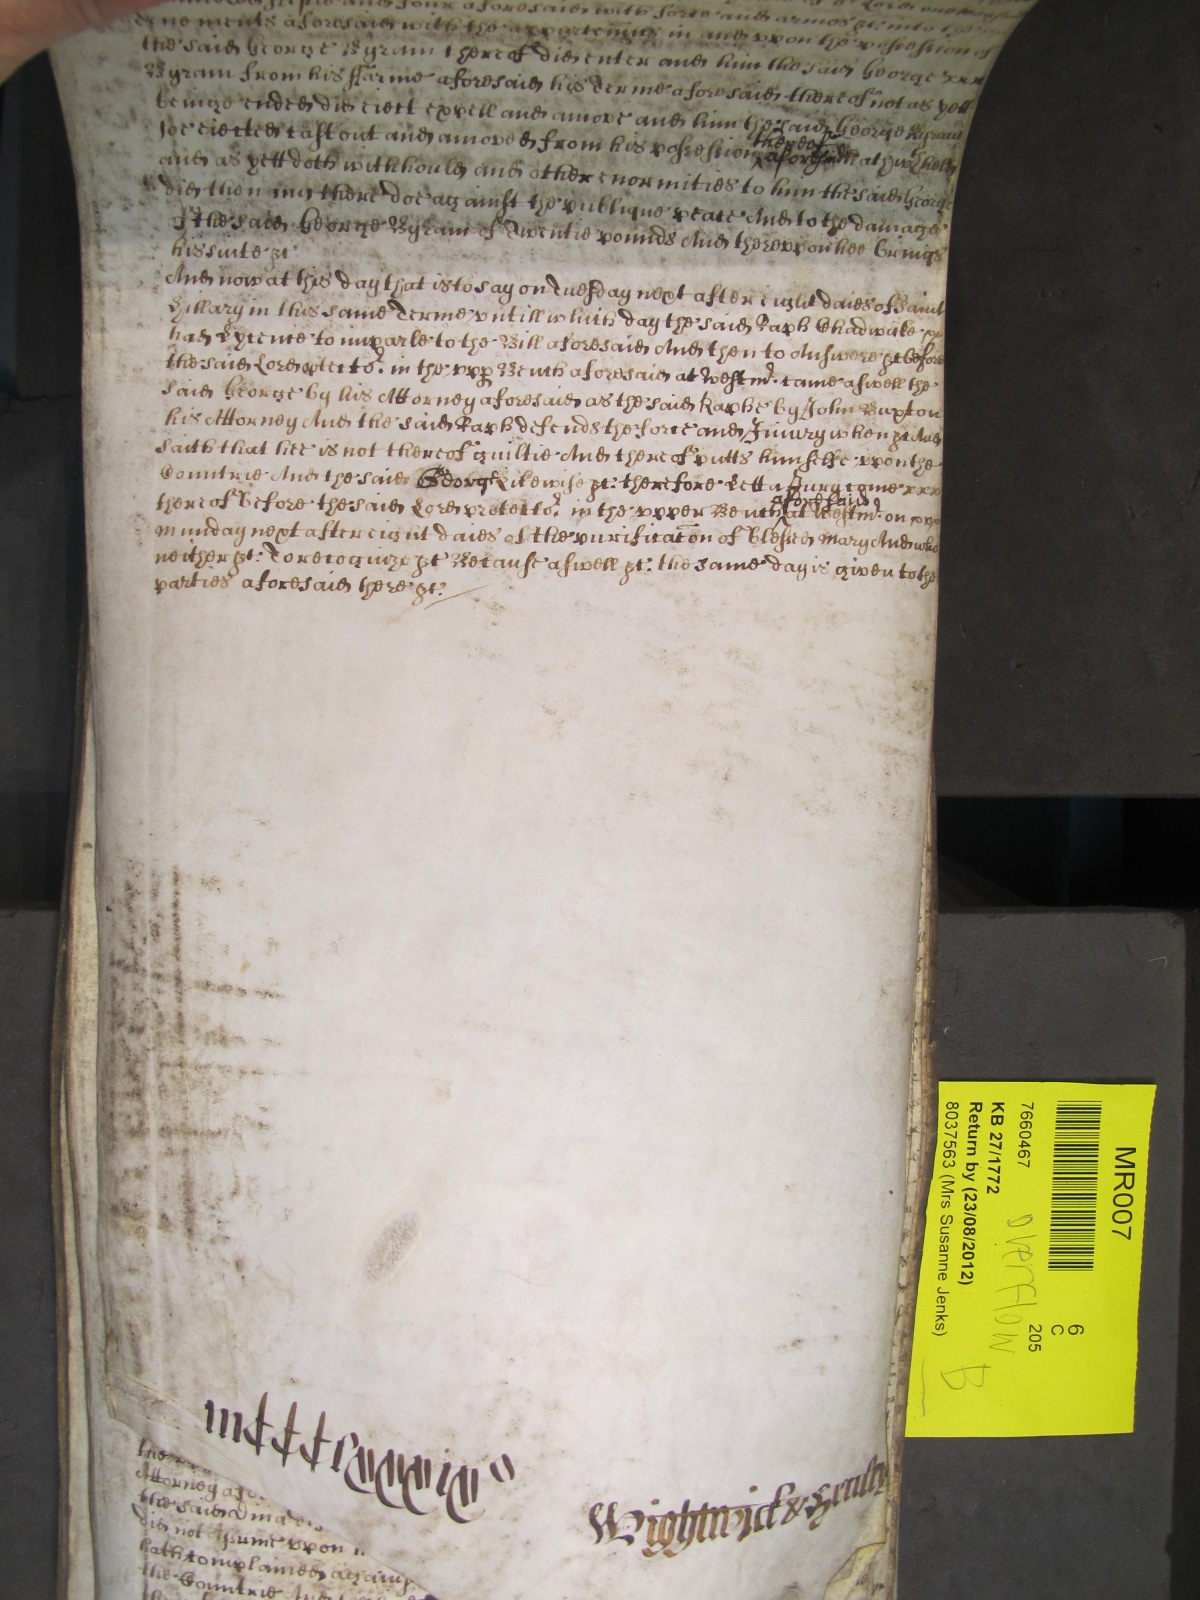 and four aforesaid with force and armes &c: into the
tenements aforesaid with the appurtenncs in and vpon the possession of
the said George Bgram thereof did enter and him the said George
Bgram from his ffarme aforesaid his Terme aforesaid thereof not as yett
beinge ended did eiect expell and amove and him the said George Bgram
soe eiected cast out and amoved from his possession thereof
and as yett doth withhould and other enormities to him the said George
did then and there doe against the publique peace And to the damage
of the said George Bgram of Twentie pounds And therevpon hee brings
his suite &c
And now at this day that is to say on Tuesday next after eight daies of Saint
Hillary in this same Terme vntill which day the said Raph Chadwicke
had Lycence to imparle to the Bill aforesaid And then to Answere &c before
the said Lord protector. in the vpp Bench aforesaid at Westmr. came aswell the
said George by his Attorney aforesaid as the said Raphe by John Buxton
his Attorney And the said Raph defends the force and Iniury when &c And
saith that hee is not thereof guiltie And thereof putts himselfe vpon the
Countrie And the said George Likewise &c: therefore Lett a Jury come
thereof before the said Lord protector. in the vpper Bench aforesaid at Westmr. on
munday next after eight daies of the purificacon of blessed Mary And who
neither &c: To recognize &c Because aswell &c: the same day is given to the
parties aforesaid there &c:
Wightwick &
the
Attorney
the said
did not
hath complained
the Countrie And
MR007
6
C
205
7660467
overflow
B
KB 27/1772
Return by (23/08/2012)
8037563 (Mrs Susanne Jenks)